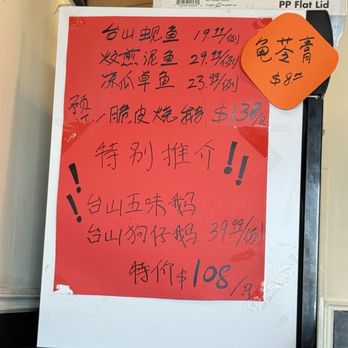 PP Flat Lid
台山蚬鱼 19.99/例
炆煎泥鱼 29.99/例
凉瓜卓鱼 23.99/例
龟苓膏
$8.00
预订脆皮烧鹅 $138/只
特别推介!!
!!
台山五味鹅
台山狗仔鹅 39.99/例
特价$108/只